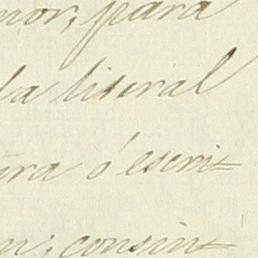 mor, para
la literal
ura ó escri=
n; consin=